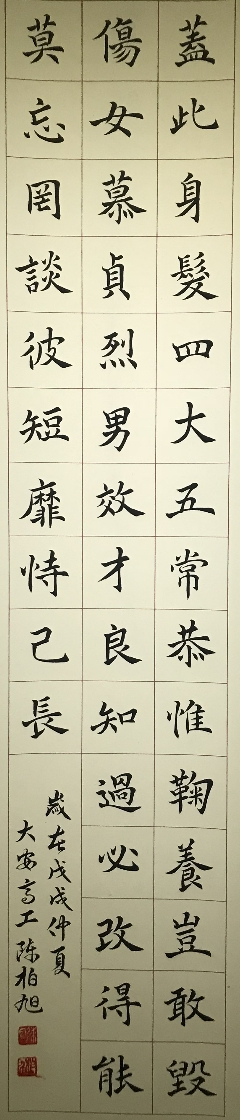 蓋此身髮四大五常恭惟鞠養豈敢毀
傷女慕貞烈男效才良知過必改得能
莫忘罔談彼短靡恃己長
歲在戊戌仲夏
大安高工陈柏旭